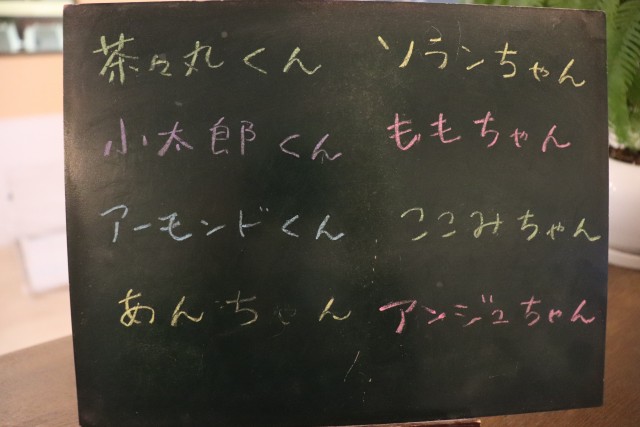 茶々丸くん ソランちゃん
小太郎くん ももちゃん
アーモンドくん ここみちゃん
あんちゃん アンジュちゃん